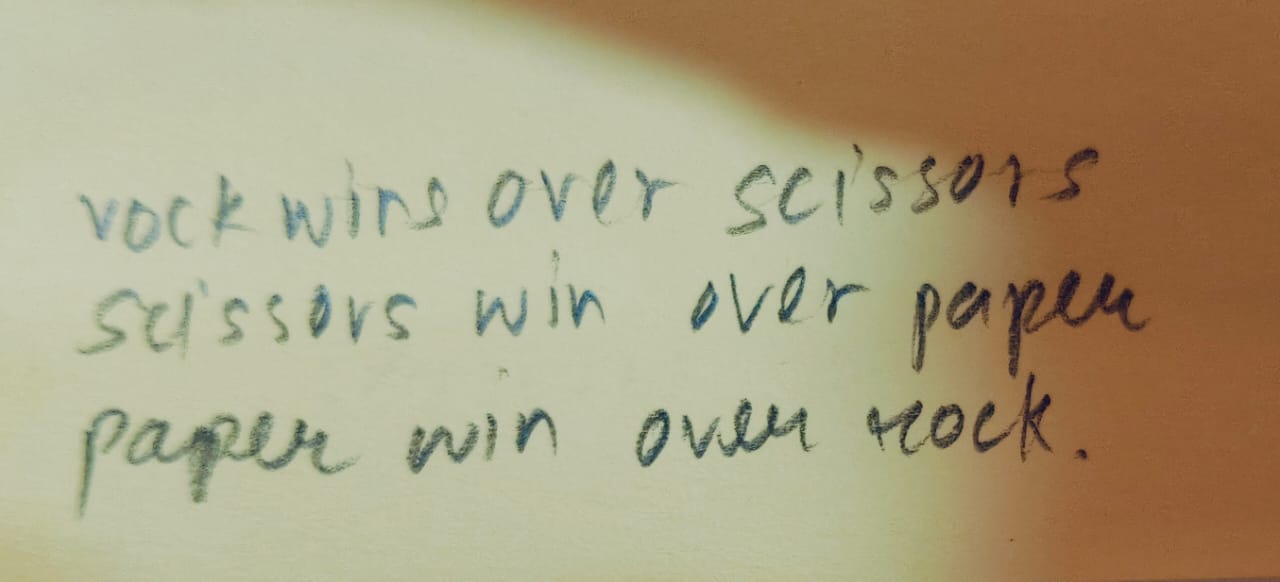 rock wins over scissors
scissors win over paper
paper win over rock.